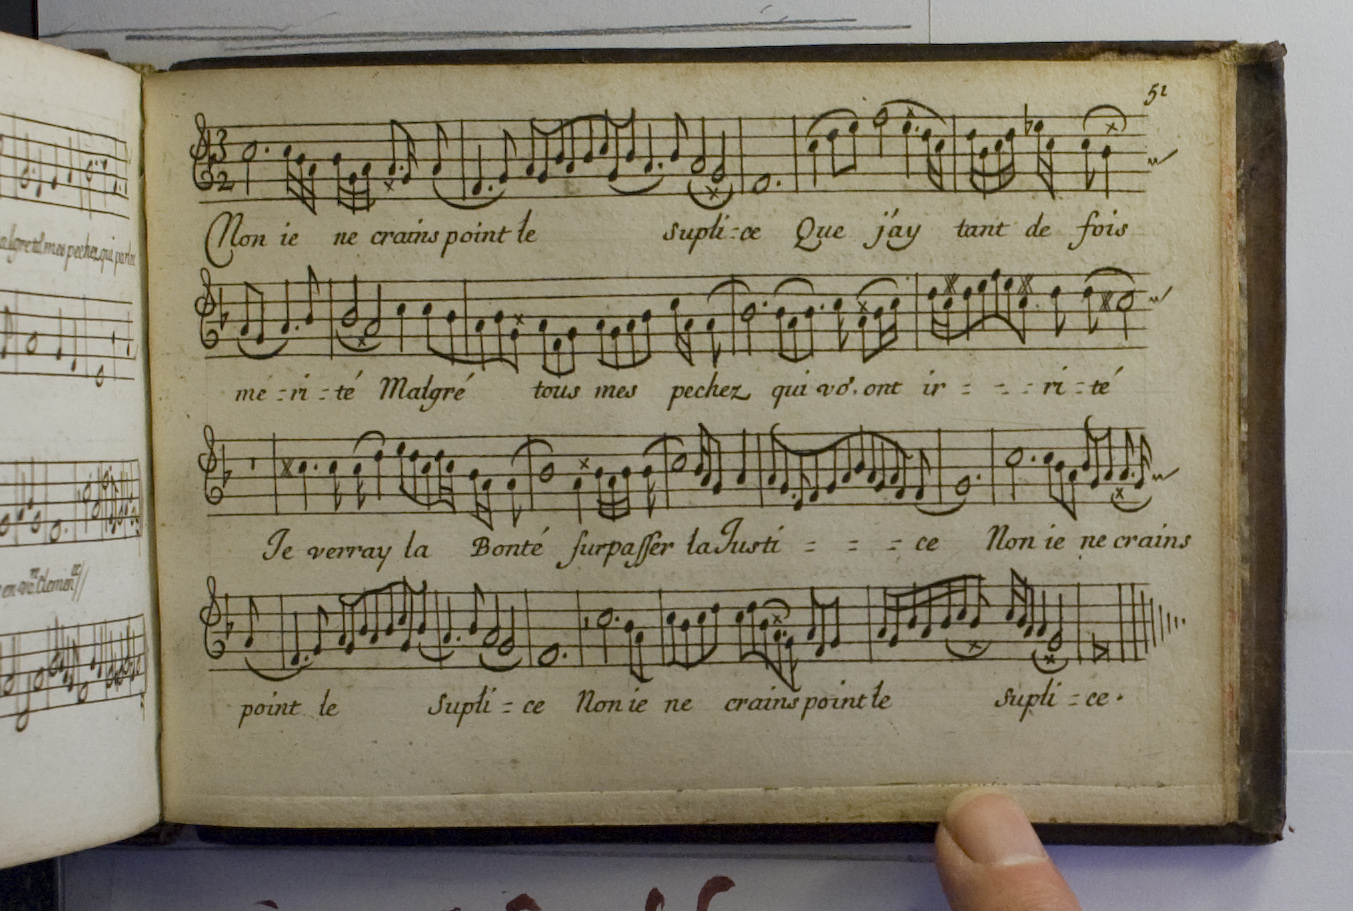 51
3
2
Non ie ne crains point le supli-ce Que j'ay tant de fois
mé-ri-té Malgré tous mes pechez qui vo9. ont ir---ri-té
Je verray la Bonté surpasser la Justi---ce Non ie ne crains
point le supli-ce Non ie ne crains point le supli-ce.
malgré tt mes pechez qui par les
en vre. Clemen ce